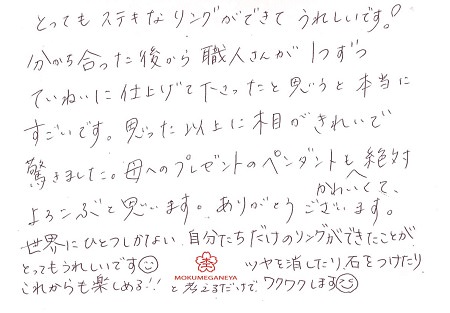 とってもステキなリングができてうれしいです。
分かち合った後から職人さんが1つずつ
ていねいに仕上げて下さったと思うと本当に
すごいです。思った以上に木目がきれいで
驚きました。母へのプレゼントのペンダントも絶対
かわいくて、
よろこぶと思います。ありがとうございます。
世界にひとつしかない自分たちだけのリングができたことが
とってもうれしいです
MOKUMEGANEYA
ツヤを消したり、石をつけたり
これからも楽しめる!!と考えるだけでワクワクします